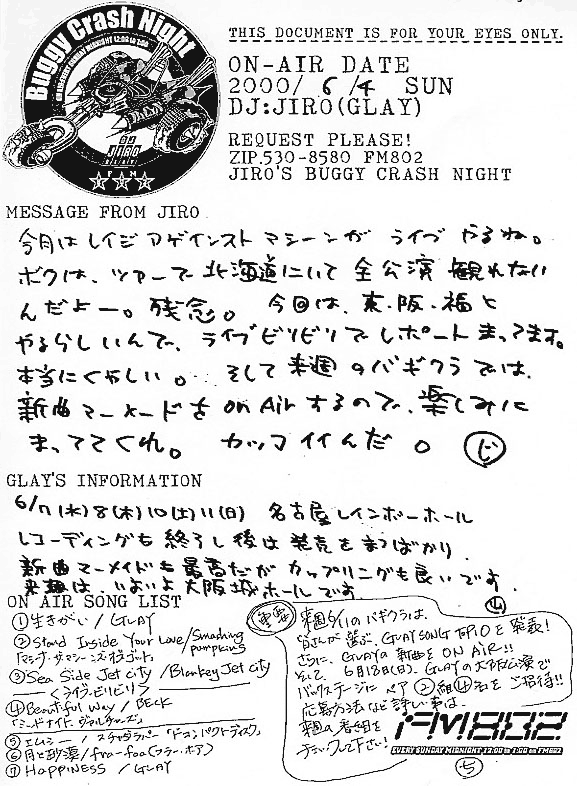 Buggy Crash Night
EVERY SUNDAY MIDNIGHT 12:00 to 1:00
JIRO
FM
THIS DOCUMENT IS FOR YOUR EYES ONLY.
ON-AIR DATE
2000/ 6 /4 SUN
DJ:JIRO(GLAY)
REQUEST PLEASE!
ZIP.530-8580 FM802
JIRO'S BUGGY CRASH NIGHT
MESSAGE FROM JIRO
今月はレイジアゲインストマシーンがライブやるね。
ボクは、ツアーで北海道にいて全公演観れない
んだよー。残念。今回は、東・阪・福と
やるらしいんで、ライブビリビリでレポートまってます。
本当にくやしい。そして来週のバギクラでは、
新曲マーメードをon Airするので、楽しみに
まっててくれ。カッコイイんだ。 ㋛
GLAY'S INFORMATION
6/7(水)8(木)10(土)11(日) 名古屋レインボーホール
レコーディングも終了し後は発売をまつばかり.
新曲マーメイドも最高だがカップリングも良いです.
来週は、いよいよ大阪城ホールです.
ON AIR SONG LIST
①生きがい / GLAY
②Stand Inside Your Love / Smashing pumpkins
「マシーナ・ザ・マシーンズ・オブ・ゴッド」
③Sea Side Jet city / Blankey Jet city
<ライブ・ビリビリ>
④Beautiful Way / BECK
「ミッドナイト・ヴァルチャーズ」
⑤エムシー / スチャダラパー「ドコンパクトディスク」
⑥月と砂漠 / fra-foa (フラ・ホア)
⑦HAPPINESS / GLAY
来週6/11のバギクラは、
皆さんが選ぶ、GLAY SONG TOP10を発表!
さらに、GLAYの新曲をON AIR!!
そして 6月18日(日)、GLAYの大阪公演で
バックステージにペア②組④名をご招待!!
応募方法など詳しい事は、
来週の番組を
チェックして下さい!
FM802
EVERY SUNDAY MIDNIGHT 12:00 to 1:00 on FM802
⑤